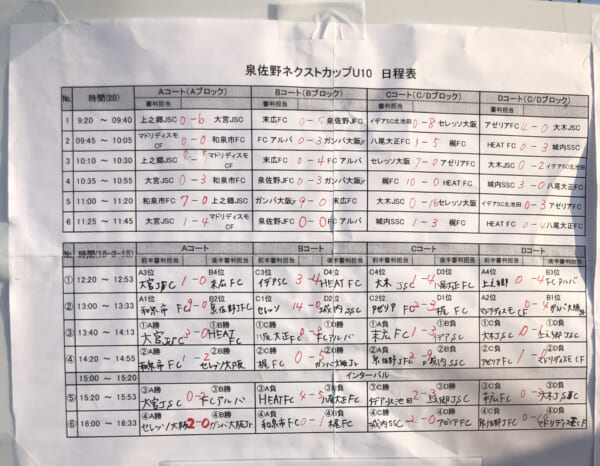 泉佐野ネクストカップU10 日程表
№ 時間(20) Aコート(Aブロック) Bコート(Bブロック) Cコート(C/Dブロック) Dコート(C/Dブロック)
審判担当 審判担当 審判担当 審判担当
1 9:20 ～ 09:40 上之郷JSC 0-6 大宮JSC 末広FC 0-5 泉佐野JFC イデアSC北池田 0-8 セレッソ大阪 アゼリアFC 4-0 大木JSC
2 09:45 ～ 10:05 マドリディスモCF 0-0 和泉市FC FC アルバ 0-3 ガンバ大阪jr 八尾大正FC 1-5 梶FC HEAT FC 0-3 城内SSC
3 10:10 ～ 10:30 上之郷JSC マドリディスモCF 末広FC 0-4 FC アルバ セレッソ大阪 7-0 アゼリアFC 大木JSC 0-2 イデアSC北池田
4 10:35 ～ 10:55 大宮JSC 0-3 和泉市FC 泉佐野JFC 0-3 ガンバ大阪jr 梶FC 10-0 HEAT FC 城内SSC 3-0 八尾大正FC
5 11:00 ～ 11:20 和泉市FC 7-0 上之郷JSC ガンバ大阪jr 9-0 末広FC 大木JSC 0-16 セレッソ大阪 イデアSC北池田 0-3 アゼリアFC
6 11:25 ～ 11:45 大宮JSC 1-4 マドリディスモCF 泉佐野JFC 0-0 FC アルバ 城内SSC 1-3 梶FC HEAT FC 0-4 八尾大正FC
№ 時間(15-3-15) Aコート Bコート Cコート Dコート
前半審判担当 後半審判担当 前半審判担当 後半審判担当 前半審判担当 後半審判担当 前半審判担当 後半審判担当
① 12:20 ～ 12:53 A3位 大宮JSC 1-0 B4位 末広FC C3位 イデアSC 3-4 D4位 HEAT FC C4位 大木JSC 1-4 D3位 八尾大正FC A4位 上之郷 0-4 B3位 FCアルバ
② 13:00 ～ 13:33 A1位 和泉市FC 9-0 B2位 泉佐野JFC C1位 セレッソ D2位 城内SSC C2位 アゼリアFC D1位 梶FC A2位 マドリディスモCF 0-4 B1位 ガンバ大阪
③ 13:40 ～ 14:13 ①A勝 大宮JSC ①B勝 HEAT FC ①C勝 八尾大正FC ①D勝 FCアルバ ①A負 末広FC 1-3 ①B負 イデアSC ①C負 大木JSC ①D負 上之郷JSC
④ 14:20 ～ 14:55 ②A勝 和泉市FC 1-2 ②B勝 セレッソ大阪 ②C勝 梶FC ②D勝 ガンバ大阪Jr ②A負 泉佐野JFC ②B負 城内SSC ②C負 アゼリアFC ②D負 マドリディスモCF
15:00 ～ 15:20 インターバル
⑤ 15:20 ～ 15:53 ③A勝 大宮JSC ③B勝 FCアルバ ③A負 HEAT FC 4-5 ③B負 八尾大正FC ③C勝 イデア北池田 ③D勝 上之郷JSC ③C負 末広FC ③D負 大木JSC
⑥ 16:00 ～ 16:33 ④A勝 セレッソ大阪 2-0 ④B勝 ガンバ大阪Jr ④A負 和泉市FC 0-1 ④B負 梶FC ④C勝 城内SSC ④D勝 アゼリアFC ④C負 泉佐野JFC ④D負 マドリディスモCF